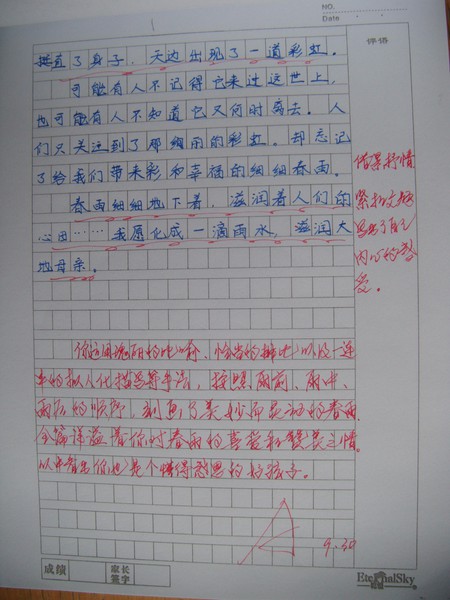 NO.
Date
评语
挺直了身子,天边出现了一道彩虹。
可能有人不记得它来过这世上,
也可能有人不知道它又何时离去。人
们只关注到了那绚丽的彩虹。却忘记
了给我们带来彩和幸福的细细春雨。
春雨细细地下着,滋润着人们的
心田……我愿化成一滴雨水,滋润大
地母亲。
借景抒情
紧扣文题
写出了自己
内心的喜
爱。
你运用 的比喻、恰当的排比以及一连
串的拟人化描写等手法,按照雨前、雨中、
雨后的顺序,刻画了美妙而灵动的春雨
全篇洋溢着你对春雨的喜爱和赞美之情。
以看出你也是个懂得感恩的好孩子。
9.30
成绩
家长
签字
EternalSky